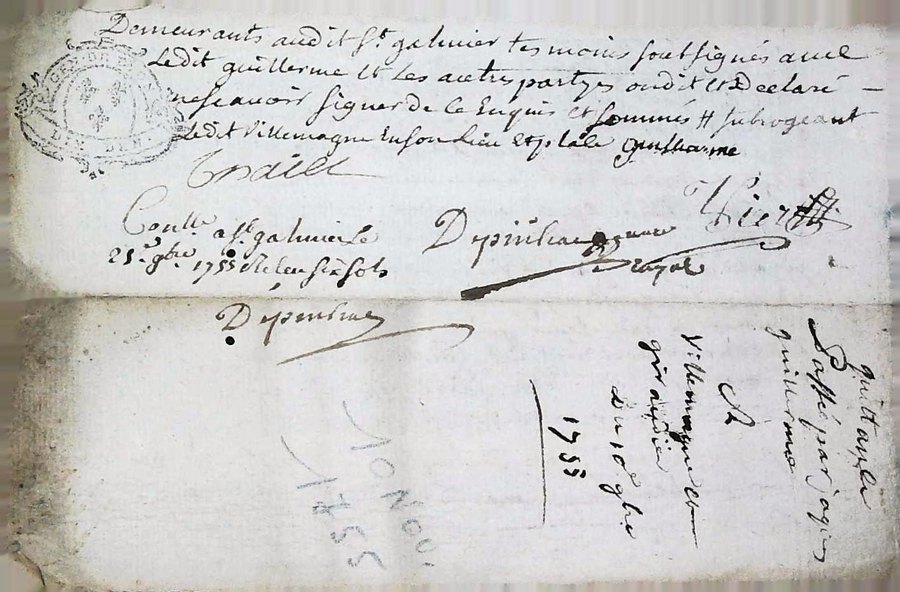 Demeurants audit St galmier tesmoins soubsignés avec
Ledit guillerme Et Les autres partyes ont dit et Declaré
ne scavoir signer de ce Enquis et sommés # subrogeant
Ledit Villemagne En son Lieu Et place guillerme
Conllé a St galmier Le
21e 9bre 1755
Depinhac
Royal
Depinhac
quittance
Passé par jaques
guillerme
A
Villemagne et
giraudier
Du 10e 9bre
1755
10 NOV.
1755